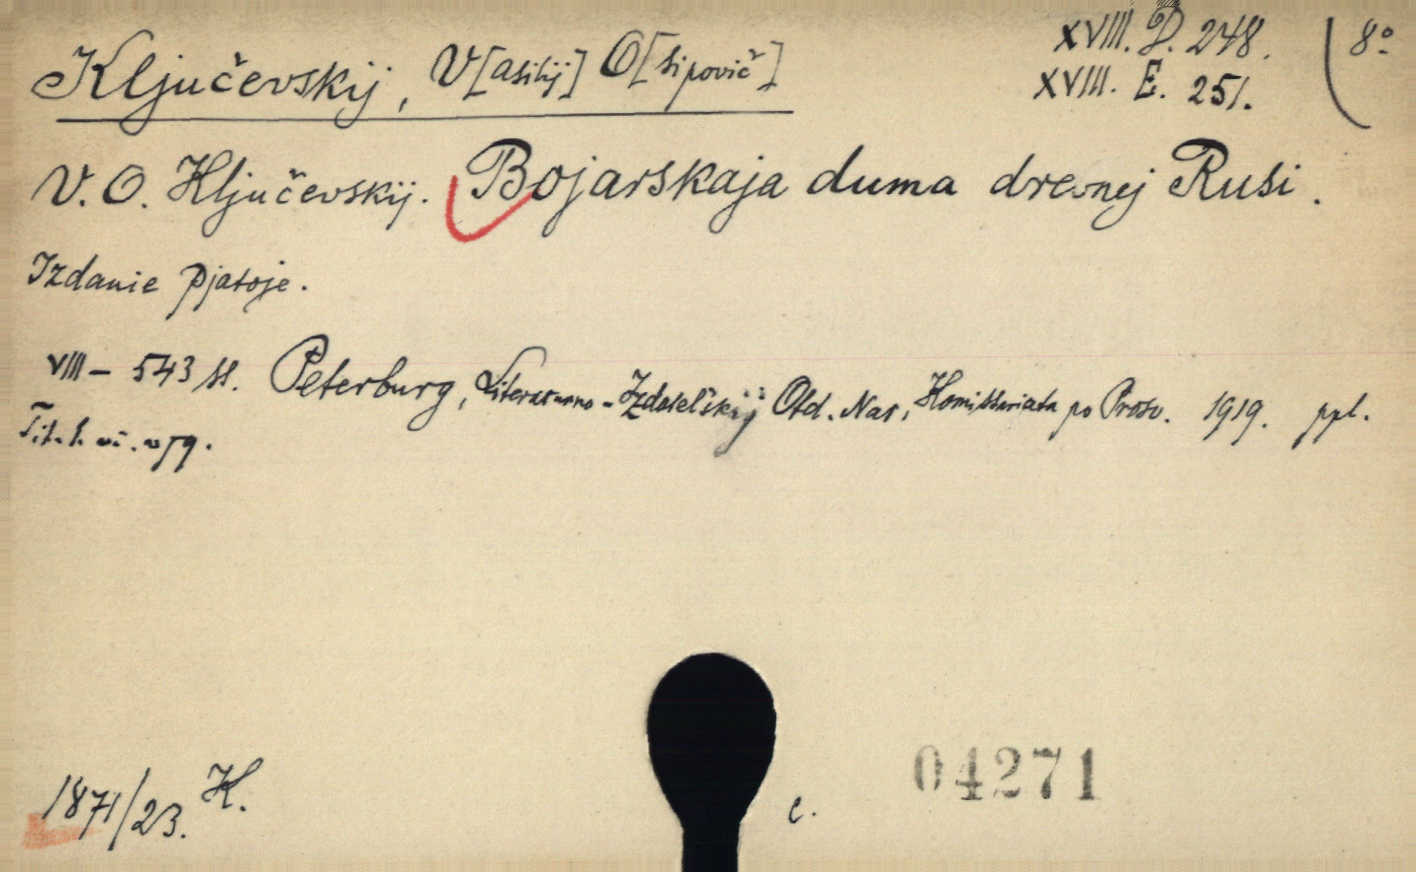 Ključevskij, V[asilij] O[sipovič]
XVIII. D. 248.
XVIII. E. 251.
8°
V. O. Ključevskij. Bojarskaja duma drevnej Rusi.
Izdanie pjatoje.
VIII – 543 ss. Peterburg, Literaturno-Izdatel'skij Otd. Nar. Komissariata po Prosv. 1919. ppl.
Tit. l.
1871/23. K.
c.
04271